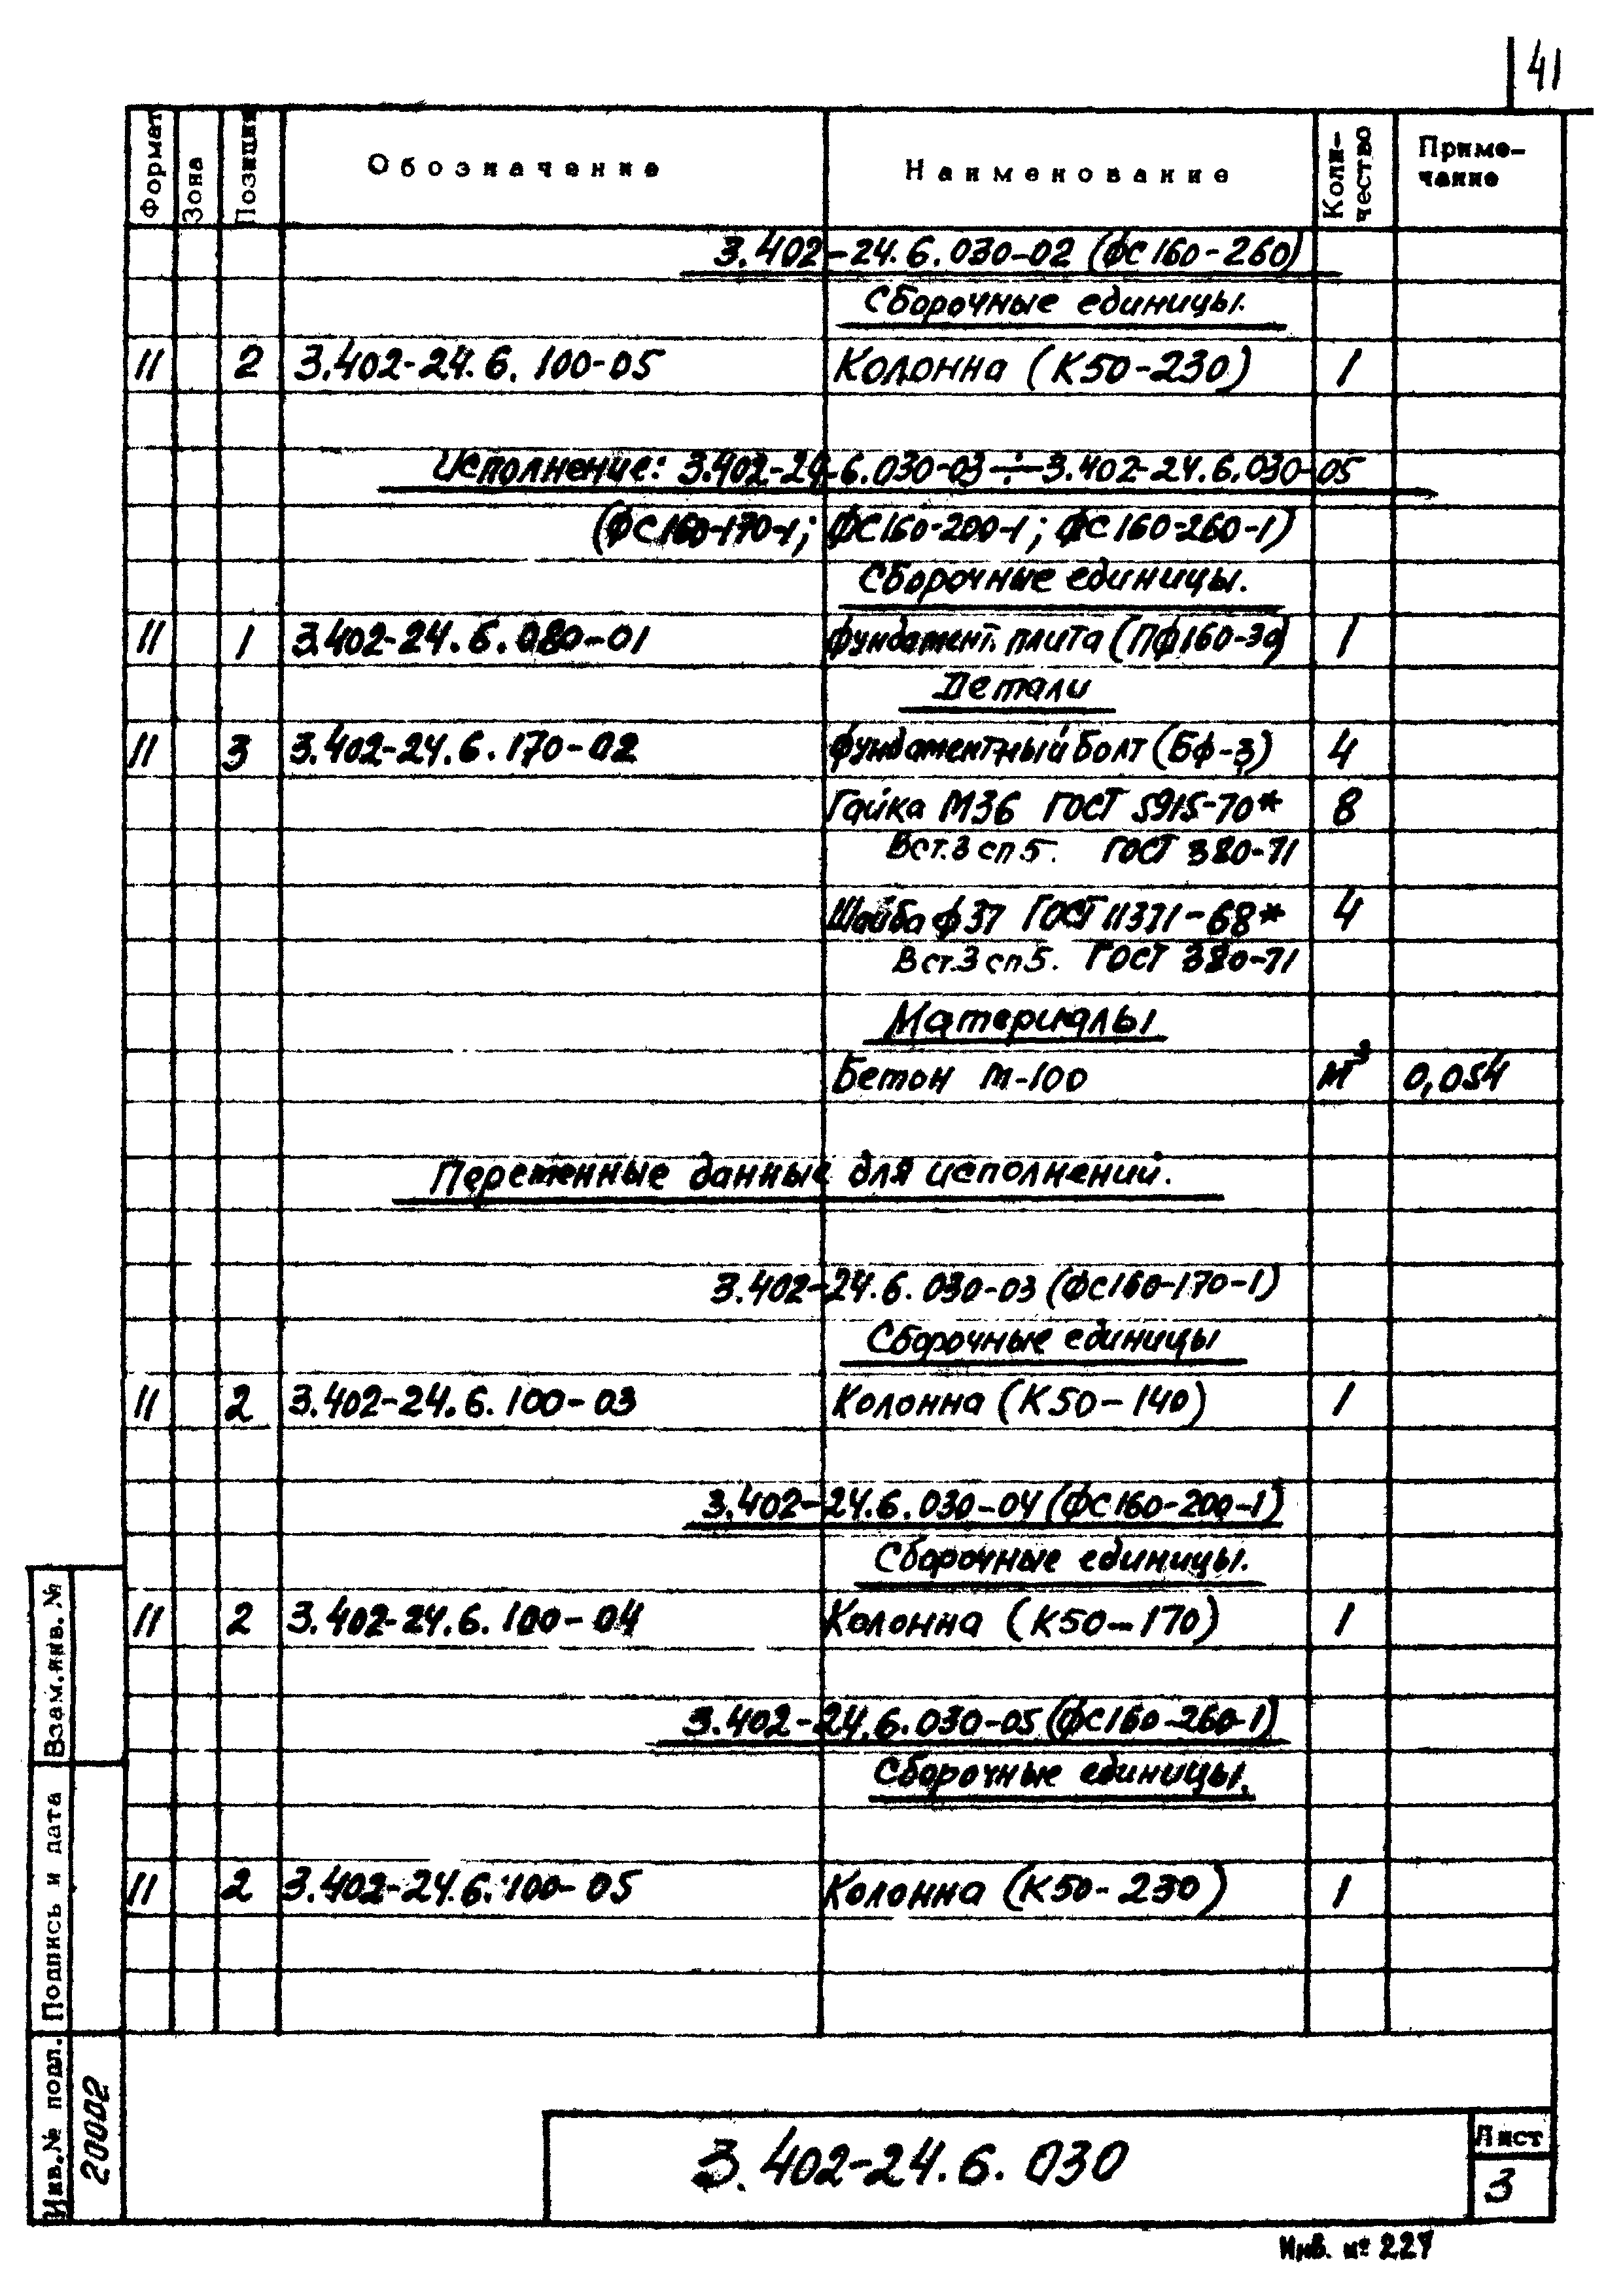 41
Формат Зона Позиция Обозначение Наименование Коли-чество Приме-чание
3.402-24.6.030-02 (ФС160-260)
Сборочные единицы.
11 2 3.402-24.6.100-05 Колонна (К50-230) 1
Исполнение: 3.402-24.6.030-03÷3.402-24.6.030-05
(ФС160-170-1; ФС160-200-1; ФС160-260-1)
Сборочные единицы.
11 1 3.402-24.6.080-01 Фундамент. плита (ПФ160-30) 1
Детали
11 3 3.402-24.6.170-02 Фундаментный болт (БФ-3) 4
Гайка М36 ГОСТ 5915-70* 8
Вст.3 сп5. ГОСТ 380-71
Шайба ф37 ГОСТ 11371-68* 4
Вст.3 сп5. ГОСТ 380-71
Материалы
Бетон М-100 м³ 0,054
Переменные данные для исполнений.
3.402-24.6.030-03 (ФС160-170-1)
Сборочные единицы
11 2 3.402-24.6.100-03 Колонна (К50-140) 1
3.402-24.6.030-04 (ФС160-200-1)
Сборочные единицы.
11 2 3.402-24.6.100-04 Колонна (К50-170) 1
3.402-24.6.030-05 (ФС160-260-1)
Сборочные единицы.
11 2 3.402-24.6.100-05 Колонна (К50-230) 1
Взам.инв. №
Подпись и дата
Инв.№ подл.
20002
3.402-24.6.030
Лист
3
Инв. №